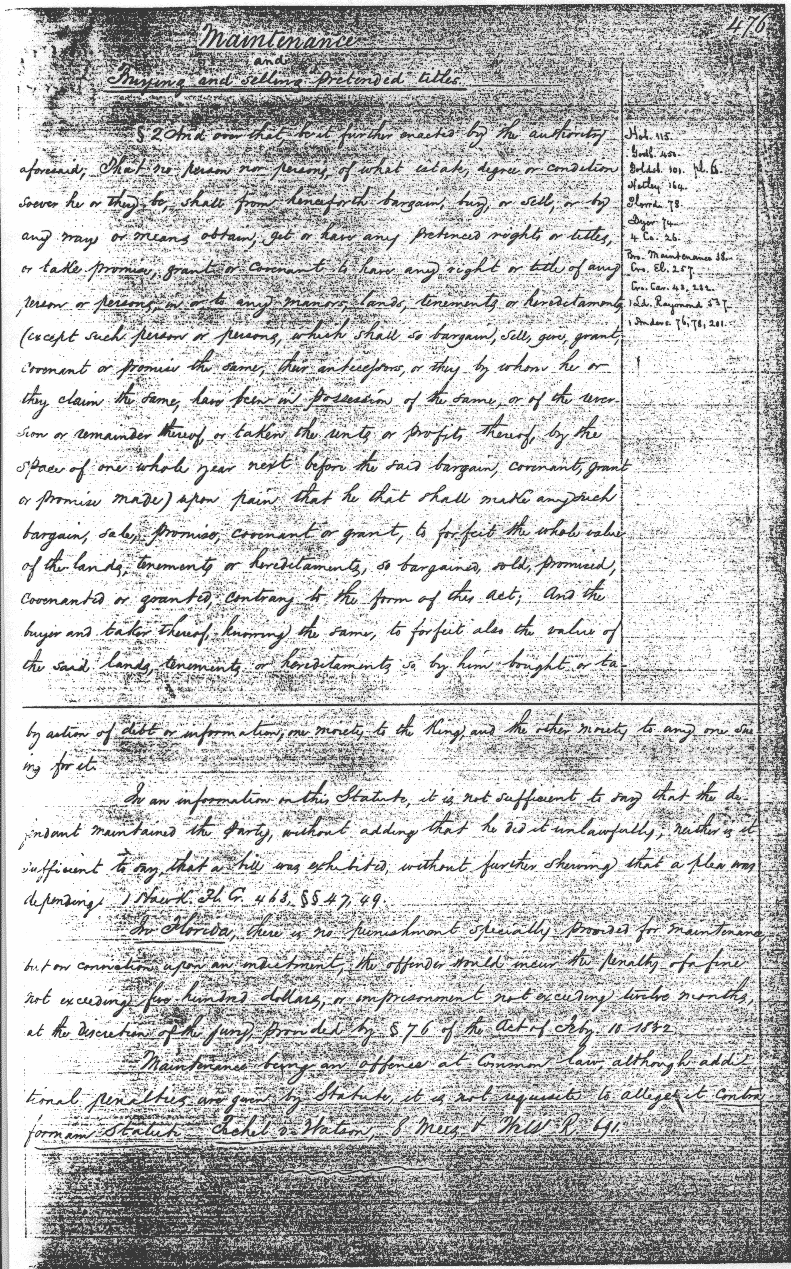 476
Maintenance
and
Buying and selling pretended titles.
§ 2 And over that be it further enacted by the authority
aforesaid, That no person nor persons, of what estate, degree or condition
soever he or they be, shall from henceforth bargain, buy, or sell, or by
any ways or means obtain, get or have any pretenced rights or titles,
or take promise, grant or covenant to have any right or title of any
person or persons, in or to any manors, lands, tenements or hereditaments
(except such person or persons, which shall so bargain, sell, give, grant,
covenant or promise the same, their ancestors, or they by whom he or
they claim the same, have been in possession of the same, or of the rever-
sion or remainder thereof, or taken the rents or profits thereof, by the
space of one whole year next before the said bargain, covenant, grant
or promise made) upon pain that he that shall make any such
bargain, sale, promise, covenant or grant, to forfeit the whole value
of the lands, tenements or hereditaments, so bargained, sold, promised,
covenanted or granted, contrary to the form of this act; And the
buyer and taker thereof, knowing the same, to forfeit also the value of
the said lands, tenements or hereditaments so by him bought or ta-
Hob. 115.
Godb. 450.
Goldsb. 101. pl. 6.
Hetley 164.
78.
Dyer 74.
4 Co. 26.
Bro. Maintenance 38.
Cro. El. 257.
Cro. Car. 232.
1 Ld. Raymond 537.
1 Anders. 76, 78, 201.
by action of debt or information, one moiety to the King and the other moiety to any one su-
ing for it.
In an information on this Statute, it is not sufficient to say that the de-
fendant maintained the party, without adding that he did it unlawfully; neither is it
sufficient to say, that a bill was exhibited, without further shewing that a plea was
depending. 1 Hawk. Pl. Cr. 463, §§ 47, 49.
In Florida, there is no punishment specially provided for maintenance
but on conviction upon an indictment, the offender would incur the penalty of a fine
not exceeding five hundred dollars, or imprisonment not exceeding twelve months,
at the discretion of the jury, provided by § 76 of the Act of Feby. 10 1832.
Maintenance being an offence at Common Law, although addi-
tional penalties are given by Statute, it is not requisite to allege it contra
formam Statuti. Pechel v. Watson, 8 Mees. & Wels. R. 691.